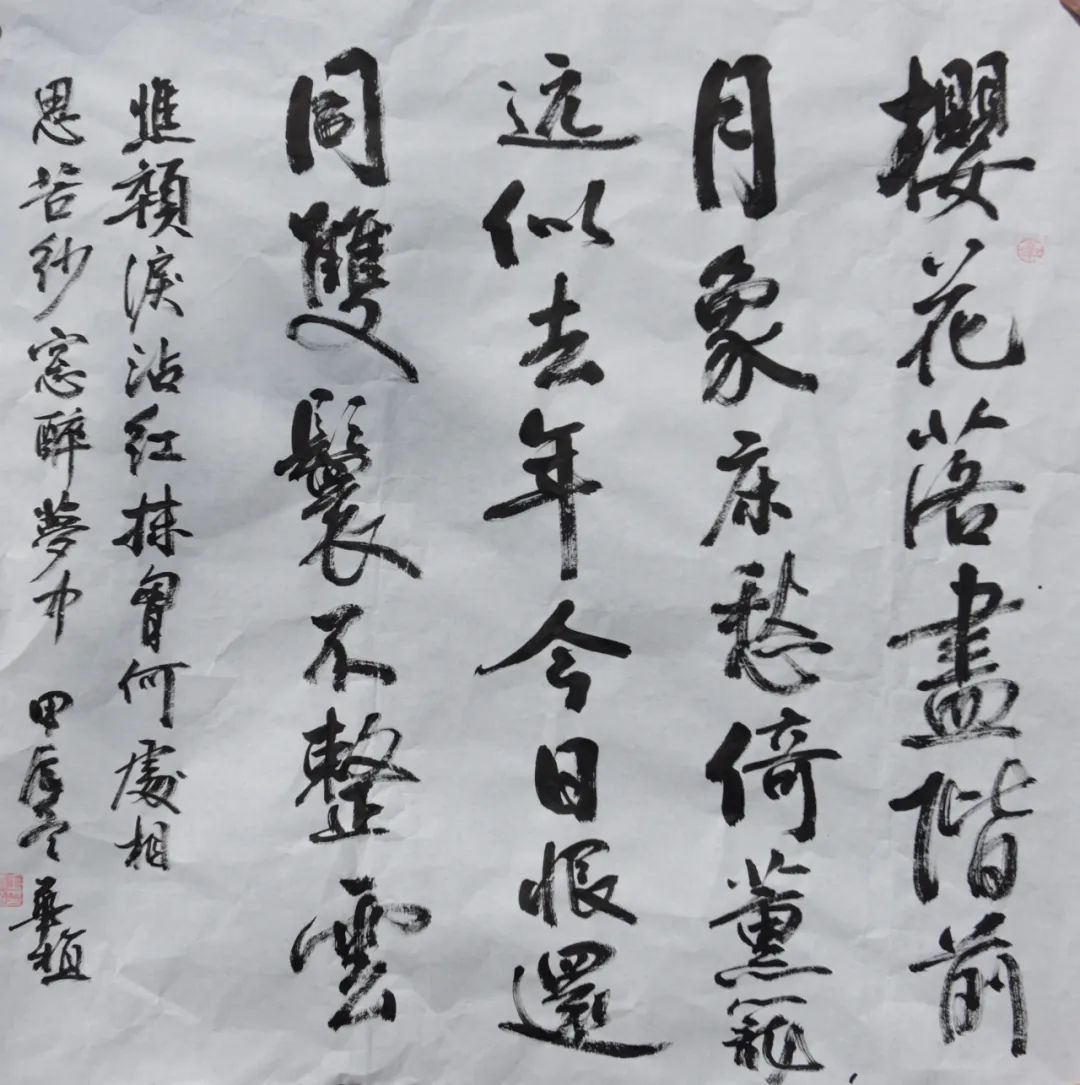 櫻花落盡階前
月象床愁倚薰籠
远似去年今日恨還
同雙鬟不整雲
憔顇淚沾紅抹胷何處相
思苦紗窓醉夢中 甲辰冬